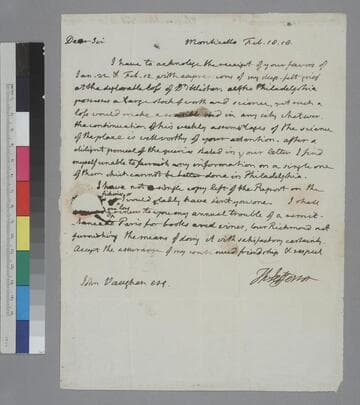 Dear Sir Monticello Feb. 18. 18.
I have to acknolege the receipt of your favors of
Jan. 22. & Feb. 12 with expressions of my deep-felt grief
at the deplorable loss of Dr Wistar. altho Philadelphia
possesses a large stock of worth and science, yet such a
loss would make a sensible void in any city whatever
the continuation of his weekly assemblages of the science
of the place is well worthy of your attention. after a
diligent perusal of the queries stated in your letter I find
myself unable to furnish any information on a single one
of them which cannot be better done in Philadelphia.
I have not a single copy left of the Report on the
would gladly have sent you one. I shall
to you my annual trouble of a remit-
tance to Paris for books and wines, our Richmond not
furnishing the means of doing it with satisfactory certainty.
Accept the assurance of my continued friendship & respect
Th: Jefferson
John Vaughan esq.